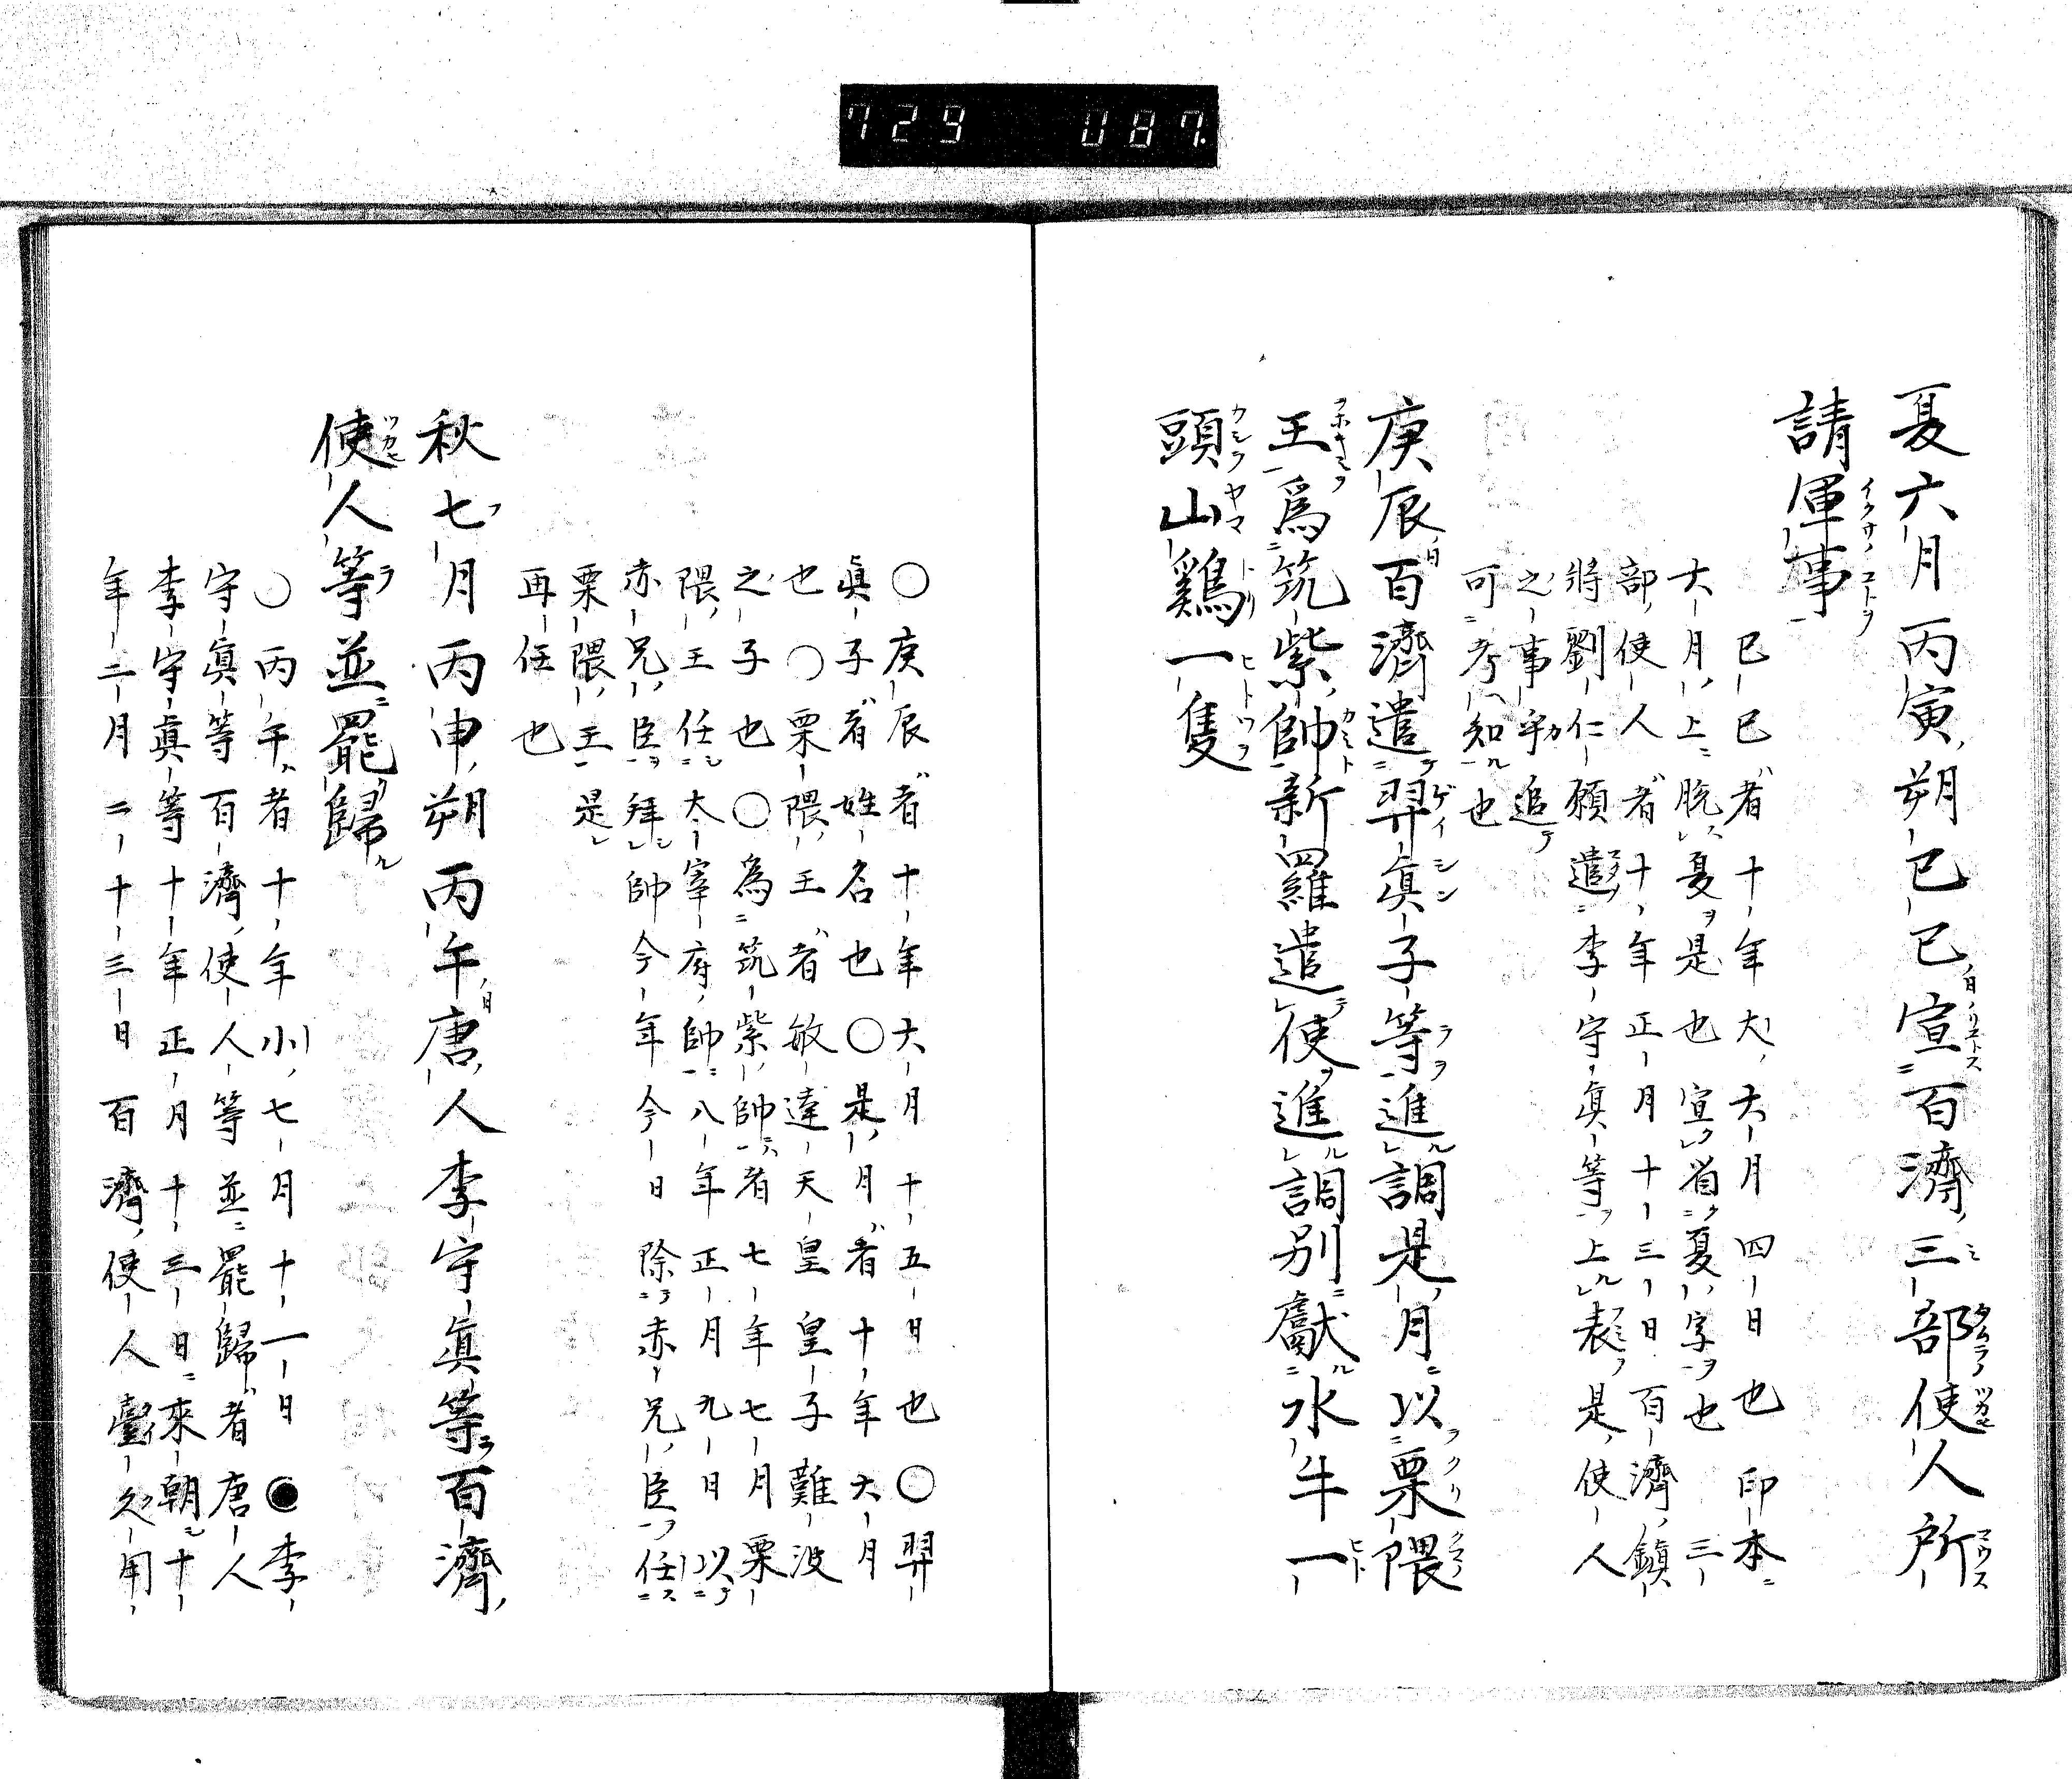 729 087.
夏六月丙寅朔己巳宣百濟三部使人所
請軍事
己巳者十年大六月四日也印本
六月上脱夏是也宣省夏字也三
部使人者十年正月十三日百濟鎮
將劉仁願遣李守真等上表是使人
之事乎追
可考知也
庚辰百濟遣羿真子等進調是月以栗隈
王爲筑紫帥新羅遣使進調別獻水牛一
頭山鷄一隻
〇庚辰者十年六月十五日也〇羿
真子者姓名也〇是月者十年六月
也〇栗隈王者敏達天皇皇子難波
之子也〇為筑紫帥者七年七月栗
隈王任太宰府帥八年正月九日以
赤兄臣拜帥今年今日除赤兄臣任
栗隈王是
再任也
秋七月丙申朔丙午唐人李守真等百濟
使人等並罷歸
〇丙午者十年小七月十一日●李
守真等百濟使人等並罷歸者唐人
李守真等十年正月十三日來朝十
年二月二十三日百濟使人臺久用